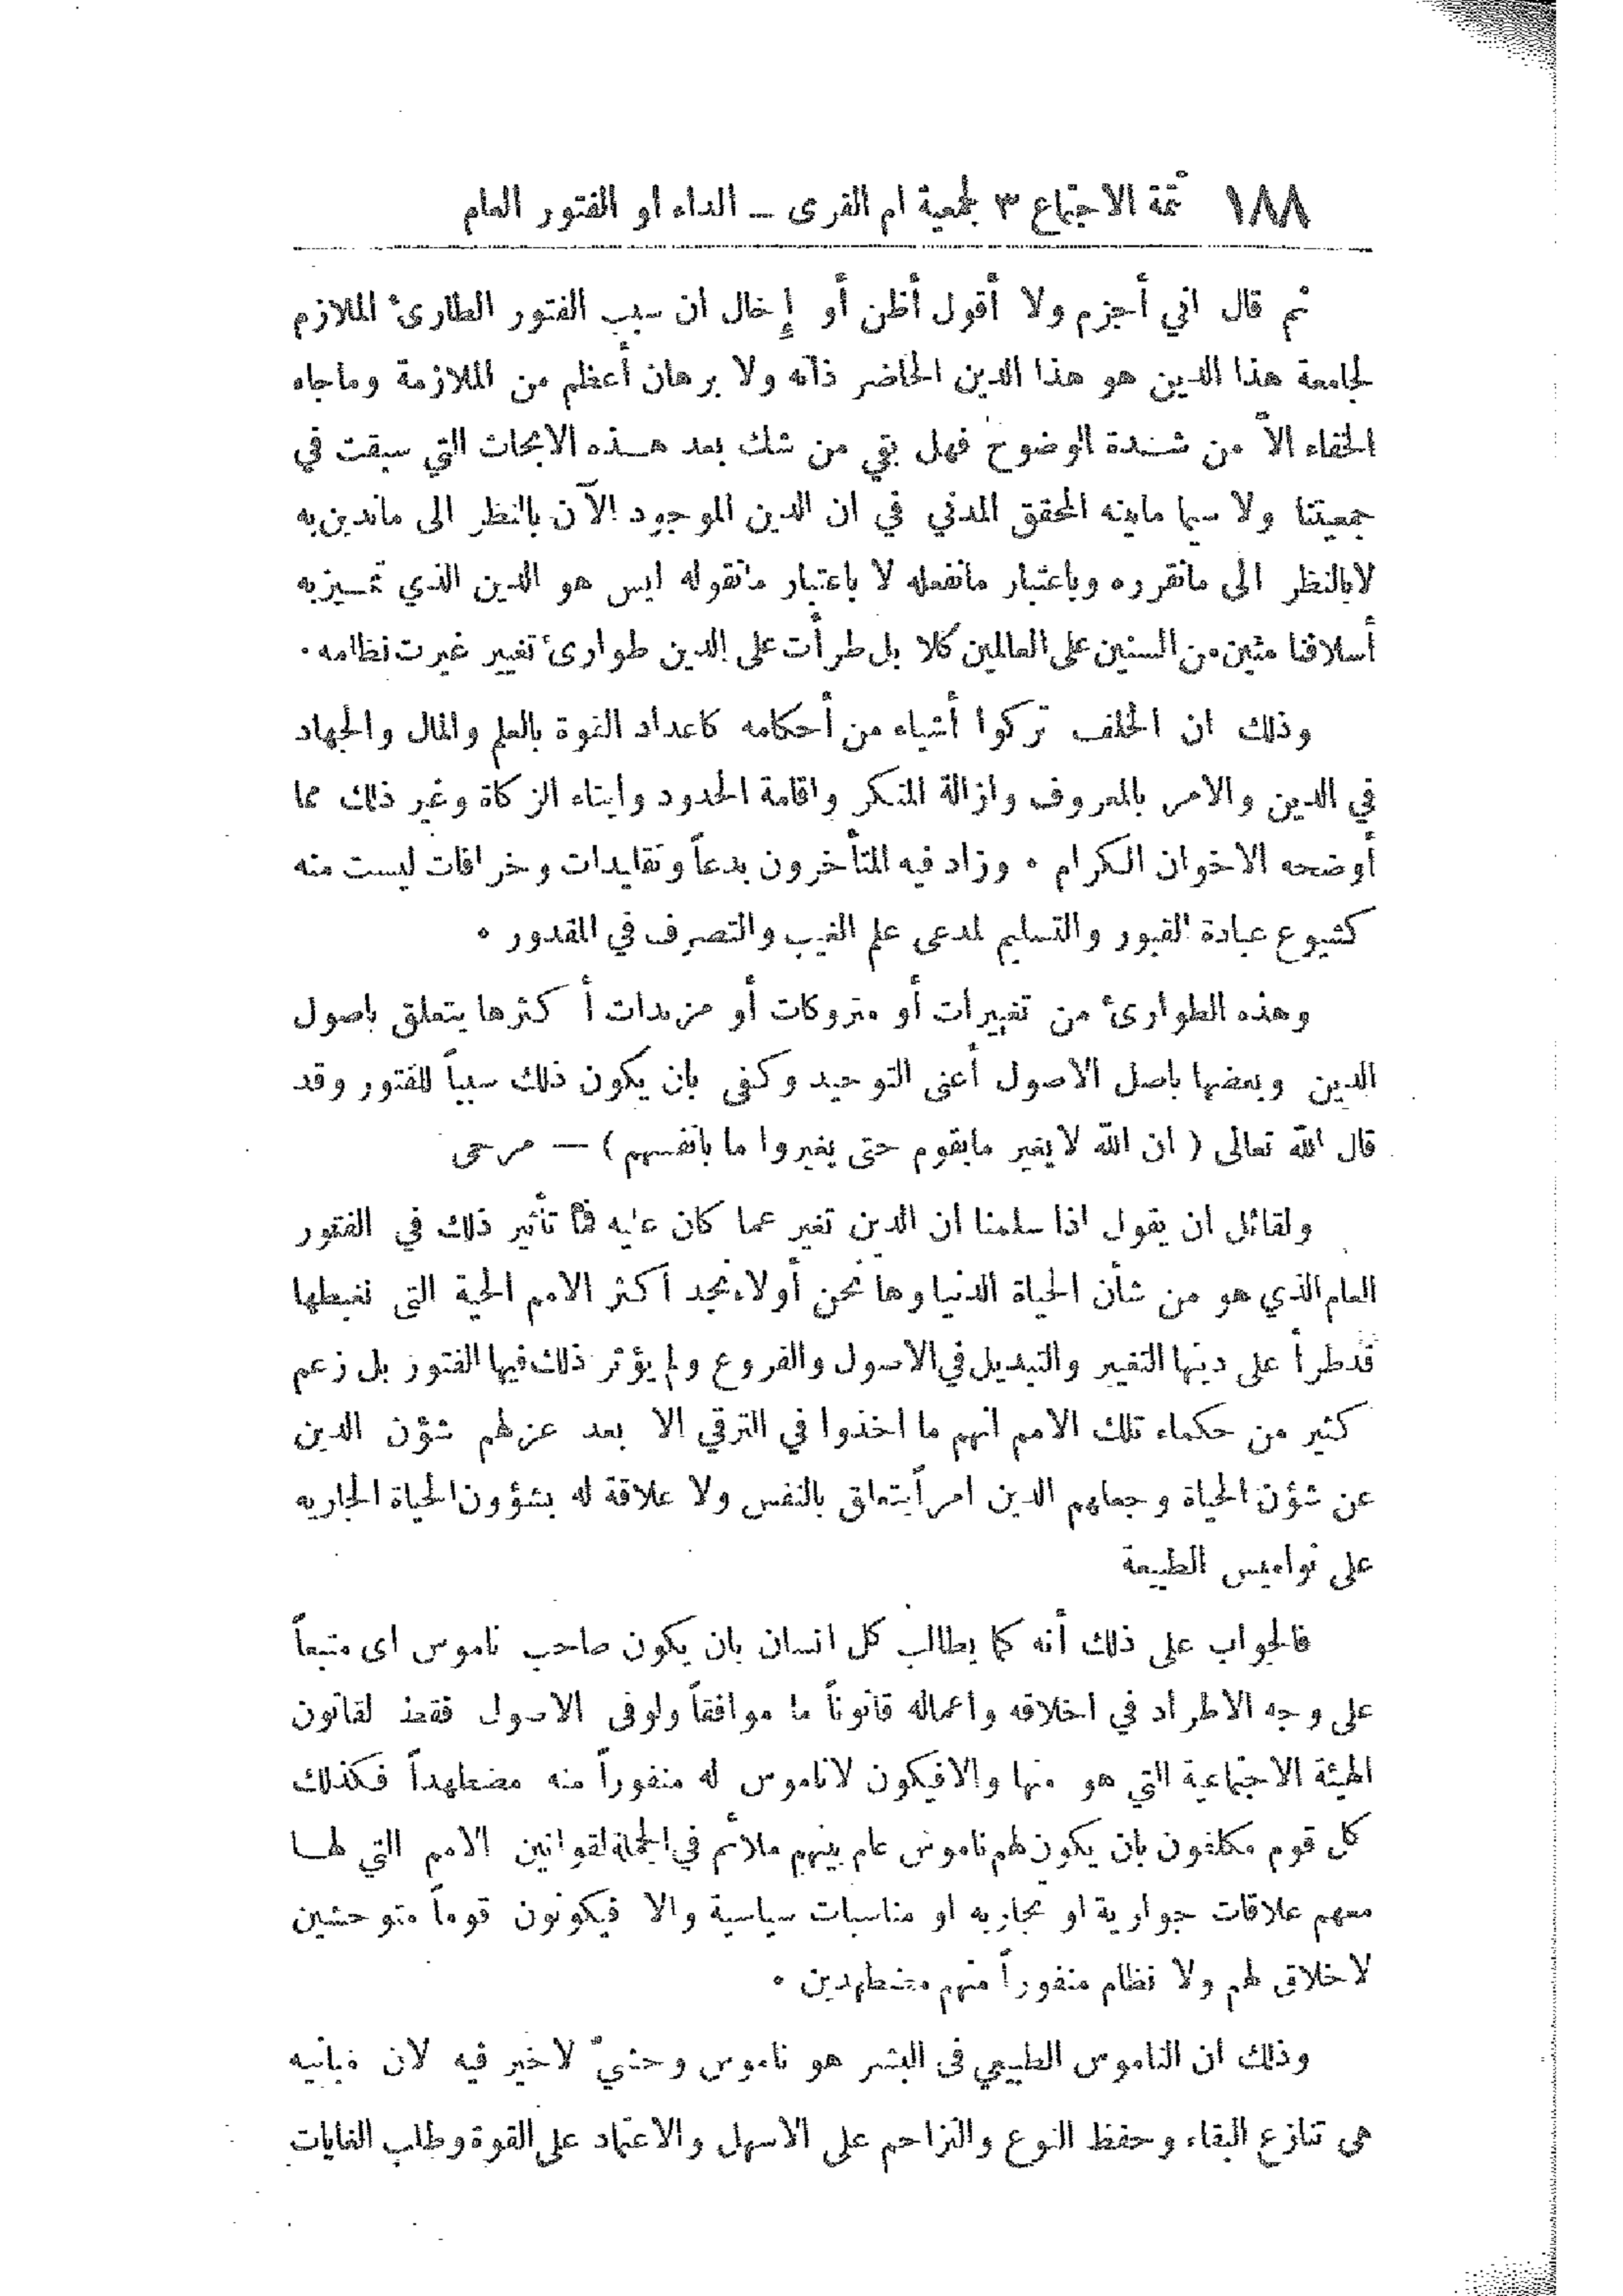 ١٨٨ تتمة الاجتماع ٣ لجمعية ام القرى ــ الداء او الفتور العام
ثم قال اني أجزم ولا أقول أظن أو إخال ان سبب الفتور الطارئ الملازم
لجامعة هذا الدين هو هذا الدين الحاضر ذاته ولا برهان أعظم من الملازمة وماجاء
الخفاء الاّ من شـدة الوضوح فهل بقي من شك بعد هـذه الابحاث التي سبقت في
جمعيتنا ولا سيما مابينه المحقق المدني في ان الدين الموجود الآن بالنظر الى ماندين به
لابالنظر الى مانقرره وباعتبار مانفعله لا باعتبار مانقوله ليس هو الدين الذي تمـيز به
أسلافنا مئين من السنين على العالمين كلا بل طرأت على الدين طوارئ تغيير غيرت نظامه .
وذلك ان الخلف تركوا أشياء من أحكامه كاعداد القوة بالعلم والمال والجهاد
في الدين والامر بالمعروف وازالة المنكر واقامة الحدود وايتاء الزكاة وغير ذلك مما
أوضحه الاخوان الكرام . وزاد فيه المتأخرون بدعاً وتقليدات وخرافات ليست منه
كشيوع عبادة القبور والتسليم لمدعى علم الغيب والتصرف في المقدور .
وهذه الطوارئ من تغييرات أو متروكات أو مزيدات أكثرها يتعلق باصول
الدين وبعضها باصل الاصول أعنى التوحيد وكفى بان يكون ذلك سبباً للفتور وقد
قال الله تعالى ( ان الله لا يغير مابقوم حتى يغيروا ما بانفسهم ) — مرحى
ولقائل ان يقول اذا سلمنا ان الدين تغير عما كان عليه فما تأثير ذلك في الفتور
العام الذي هو من شأن الحياة الدنيا وها نحن أولاء نجد اكثر الامم الحية التى نغبطها
قد طرأ على دينها التغيير والتبديل في الاصول والفروع ولم يؤثر ذلك فيها الفتور بل زعم
كثير من حكماء تلك الامم انهم ما اخذوا في الترقي الا بعد عزلهم شؤن الدين
عن شؤن الحياة وجعلهم الدين امراً يتعلق بالنفس ولا علاقة له بشؤون الحياة الجاريه
على نواميس الطبيعة
فالجواب على ذلك أنه كما يطالب كل انسان بان يكون صاحب ناموس اى متبعاً
على وجه الاطراد في اخلاقه واعماله قانوناً ما موافقاً ولوفى الاصول فقط لقانون
الهيئة الاجتماعية التي هو منها والا فيكون لاناموس له منفوراً منه مضطهداً فكذلك
كل قوم مكلفون بان يكون لهم ناموس عام بينهم ملائم في الجملة لقوانين الامم التي لهـا
معهم علاقات جوارية او تجاريه او مناسبات سياسية والا فيكونون قوماً متوحشين
لاخلاق لهم ولا نظام منفوراً منهم مضطهدين .
وذلك ان الناموس الطبيعي فى البشر هو ناموس وحشيّ لاخير فيه لان مبانيه
هى تنازع البقاء وحفظ النوع والتزاحم على الاسهل والاعتماد على القوة وطلب الغايات